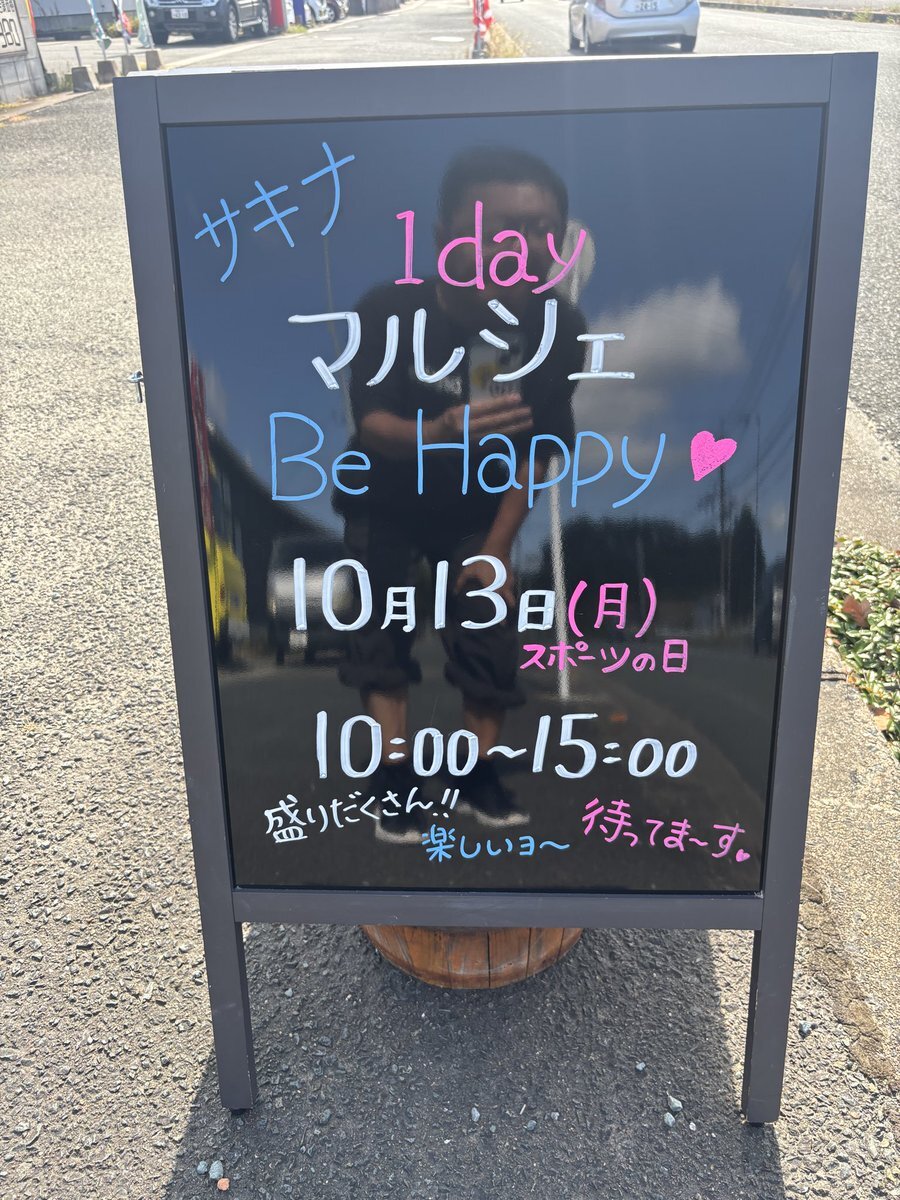 サキナ
1day
マルシェ
Be Happy♥
10月13日(月)
スポーツの日
10:00~15:00
盛りだくさん!!
楽しいヨ~
待ってま~す♥